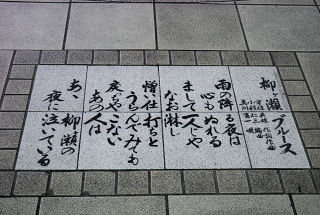 柳ヶ瀬ブルース
雨の降る夜は
心もぬれる
まして一人じゃ
なお淋し
憎い仕打ちと
うらんでみても
戻っちゃこない
あの人は
あゝ 柳ヶ瀬の
夜に泣いている